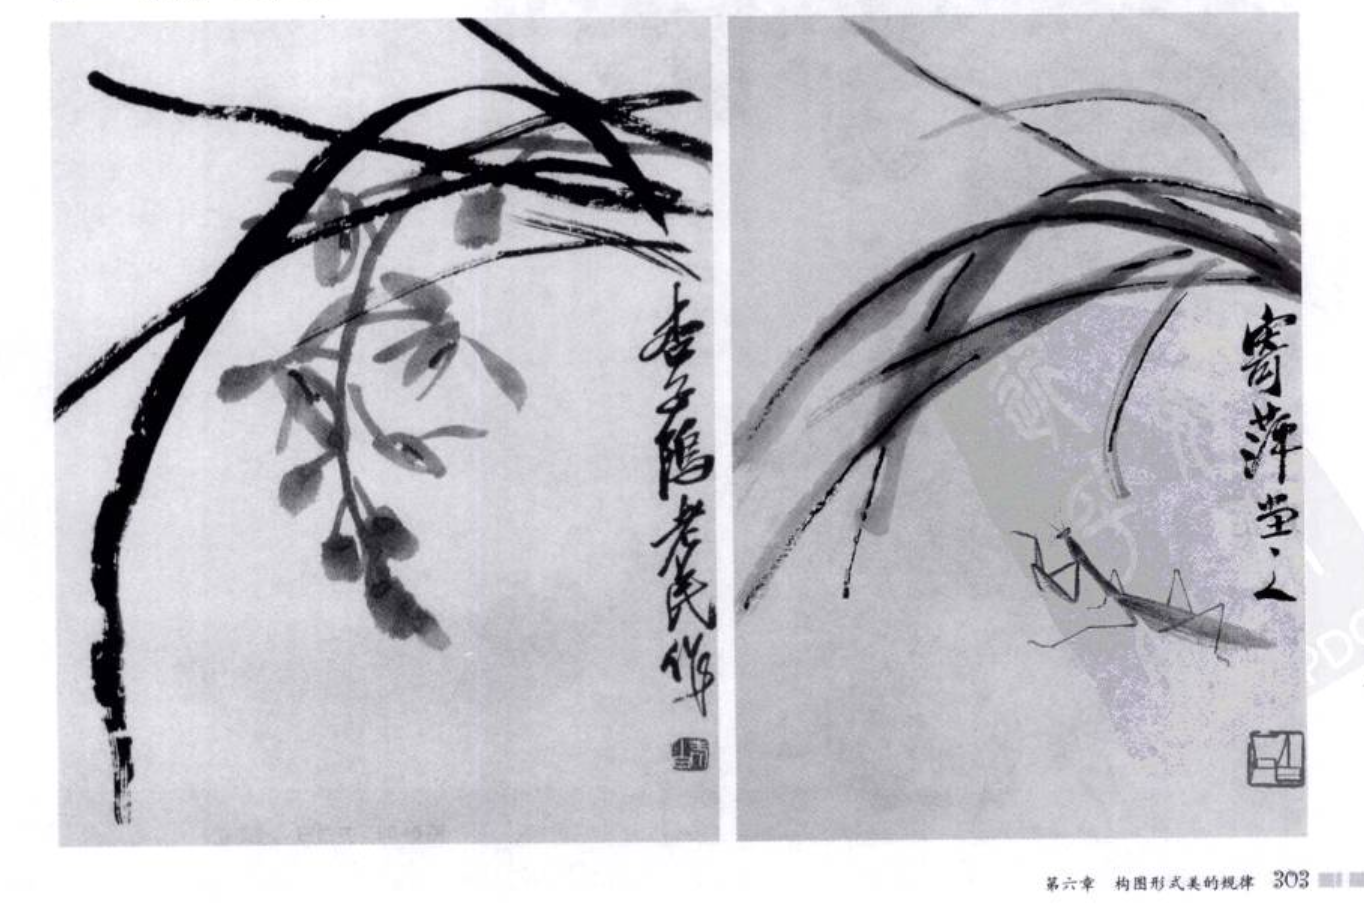 杏子隖老民作
寄萍堂、人
第六章　构图形式美的规律　303